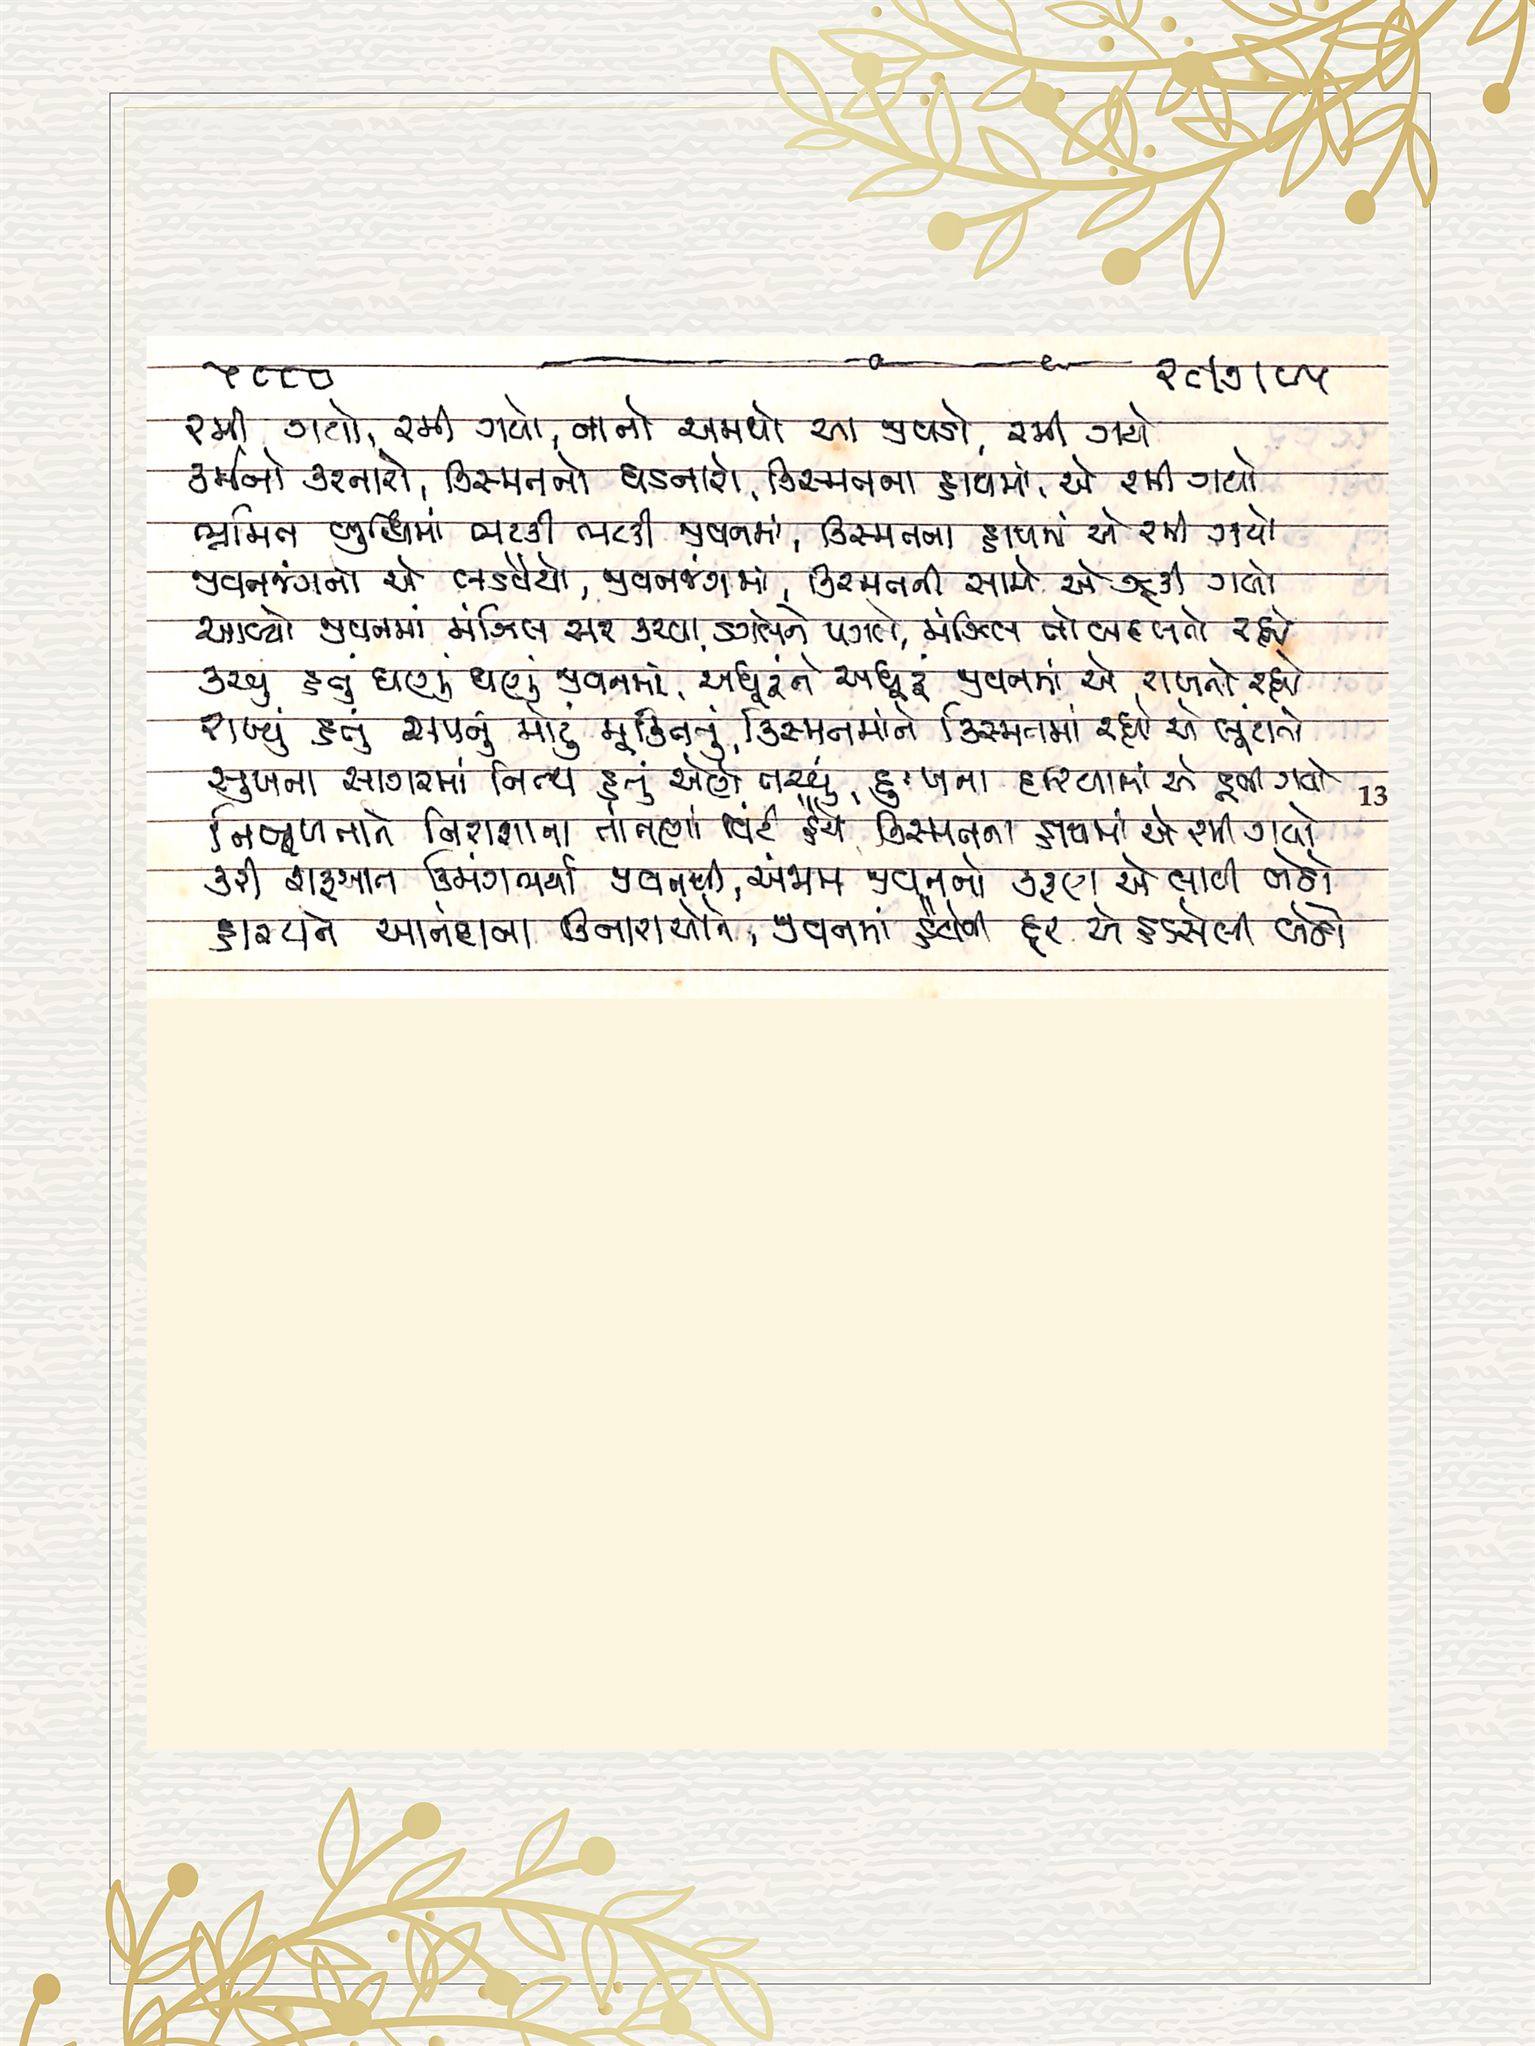 ૫૮૮૦ ૨૮/૭/૦૫
રમી ગયો, રમી ગયો, નાનો અમથો આ જીવડો, રમી ગયો
કર્મનો કરનારો, કિસ્મતનો ઘડનારો, કિસ્મતના હાથમાં, એ રમી ગયો
ભ્રમિત બુદ્ધિમાં ભટકી ભટકી જીવનમાં, કિસ્મતના હાથમાં એ રમી ગયો
જીવનજંગનો એ લડવૈયો, જીવનજંગમાં, કિસ્મતની સામે એ ઝૂકી ગયો
આવ્યો જીવનમાં મંઝિલ સર કરવા, ડગલેને પગલે, મંઝિલ તો બદલતો રહ્યો
કરવું હતું ઘણું ઘણું જીવનમાં, અધૂરૂંને અધૂરૂં જીવનમાં એ રાખતો રહ્યો
રાખ્યું હતું સપનું મોટું મૂક્તિનું, કિસ્મતમાંને કિસ્મતમાં રહ્યો એ લૂંટાતો
સુખના સાગરમાં નિત્ય હતું એણે તરવું, દુઃખના દરિયામાં એ ડૂબી ગયો
નિષ્ફળતાને નિરાશાના તાંતણા વીંટી હૈયે, કિસ્મતના હાથમાં એ રમી ગયો
કરી શરૂઆત ઉમંગભર્યા જીવનથી, અંજામ જીવનનો કરૂણ એ લાવી બેઠો
હાસ્યને આનંદના કિનારાઓને, જીવનમાં હૈયેથી દૂર એ હડસેલી બેઠો
13